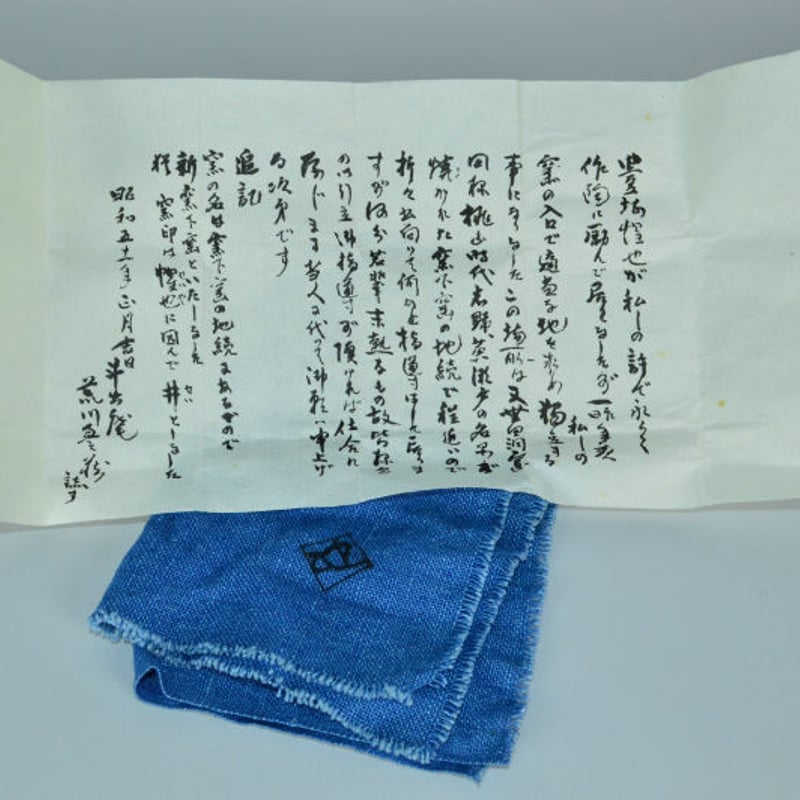 豊場惺也が私しの許で永らく
作陶に励んで居りましたが一昨年夏私しの
窯の入口で適当な地を求め独立する
事になりましたこの場所は又世田洞窯
同様桃山時代志野黄瀬戸の名品が
焼かれた窯下窯の地続で程近いので
折々出向いて何の指導は
すが何分若輩未熟なるもの故皆様
の御引立御指導が頂ければ仕合に
存じます当人に代って御願い申上げ
る次第です
追記
窯の名は窯下窯の地続きにあるがので
新窯下窯といたしました
猶窯印は惺也に因んで井としました
せい
昭和五十一年正月吉日
斗出庵
荒川豊蔵
誌す